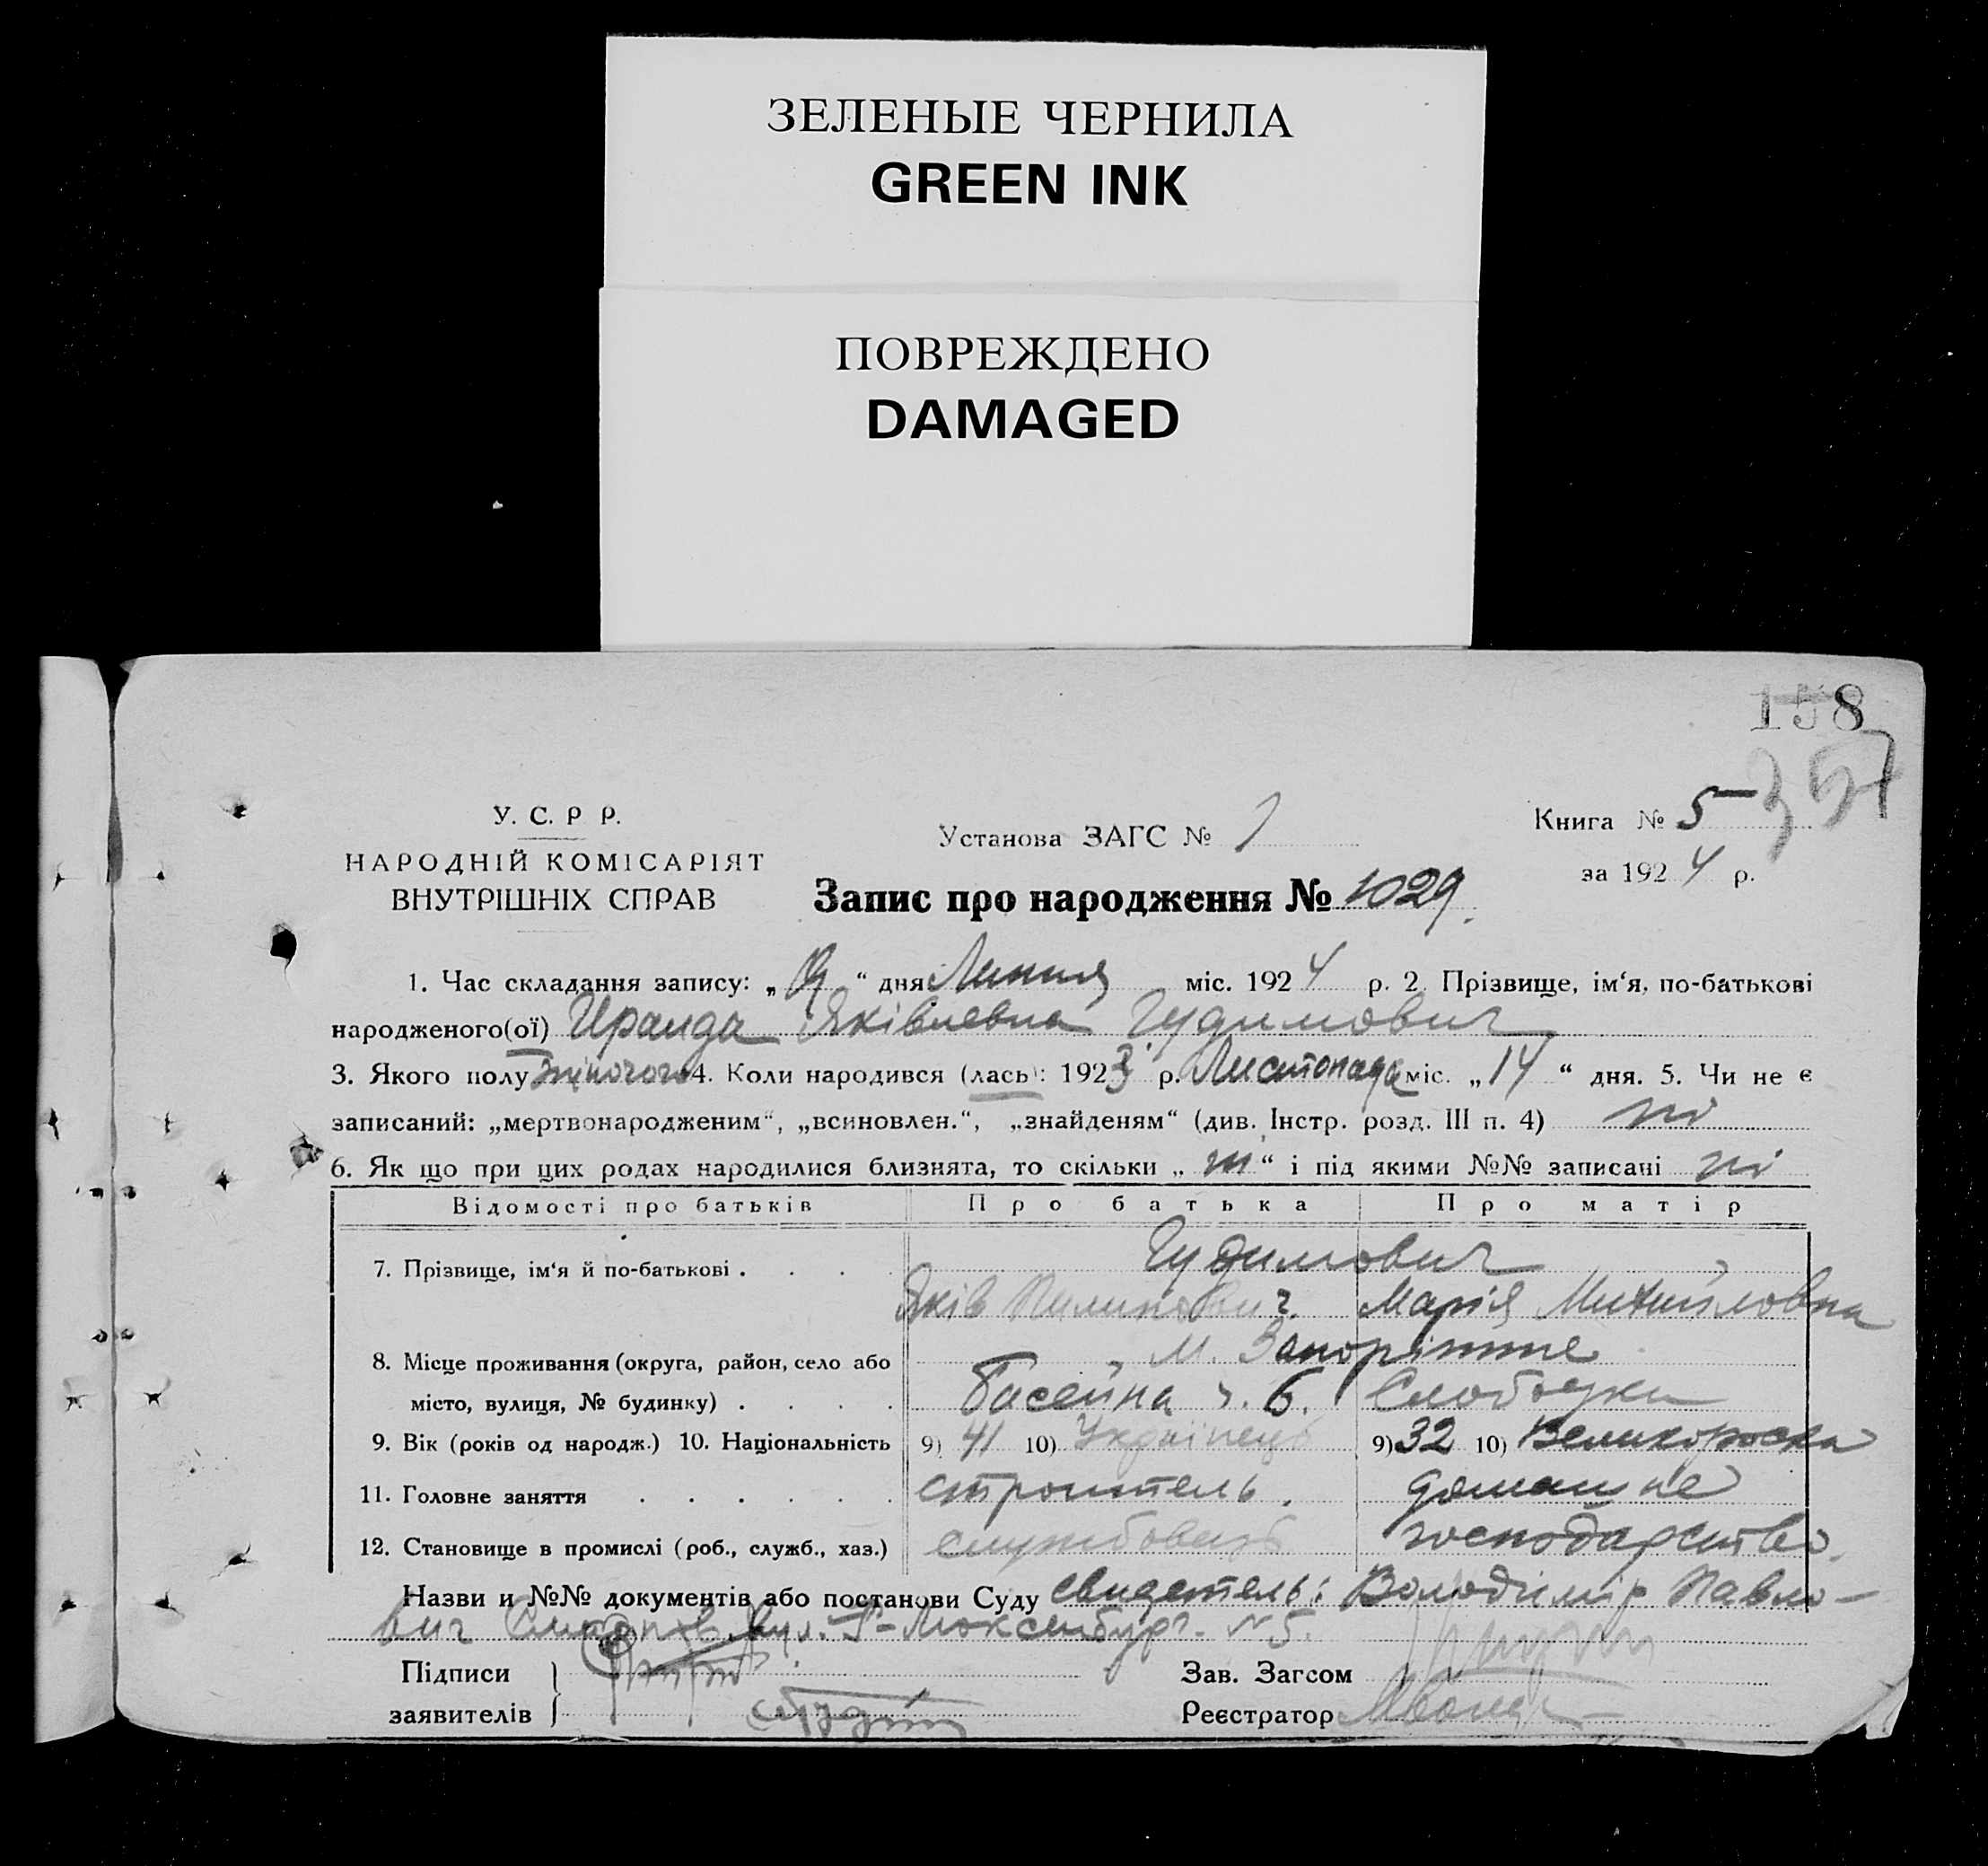 ЗЕЛЕНЫЕ ЧЕРНИЛА
GREEN INK
ПОВРЕЖДЕНО
DAMAGED
158
357
У. С. Р Р.
НАРОДНІЙ КОМІСАРІЯТ
ВНУТРІШНІХ СПРАВ
Установа ЗАГС № 1
Книга № 5
за 1924 р.
Запис про народження № 1029.
1. Час складання запису: „ “ дня Липня міс. 1924 р. 2. Прізвище, ім‘я, по-батькові
народженого(ої) Ираида Яківлевна Гудимович
3. Якого полу жіночого 4. Коли народився (лась): 1923 р. Листопада міс. „14“ дня. 5. Чи не є
записаний: „мертвонародженим“, „всиновлен.“, „знайденям“ (див. Інстр. розд. III п. 4) ні
6. Як що при цих родах народилися близнята, то скільки „ “ і під якими №№ записані ні
Відомості про батьків Про батька Про матір
7. Прізвище, ім‘я й по-батькові . . . . Гудимович
Яків Марія Михайловна
м. Запоріжже
8. Місце проживання (округа, район, село або
місто, вулиця, № будинку) . . . . Басейна 6. Слободка
9. Вік (років од народж.) 10. Національність 9) 41 10) Українець 9) 32 10) Великороска
11. Головне заняття . . . . . . строитель. домашне
12. Становище в промислі (роб., служб., хаз.) службовець господарство.
Назви и №№ документів або постанови Суду свидетель: Володимір Павло-
вич вул. Р-Люксенбург. №5.
Підписи
заявителів
Зав. Загсом
Реєстратор